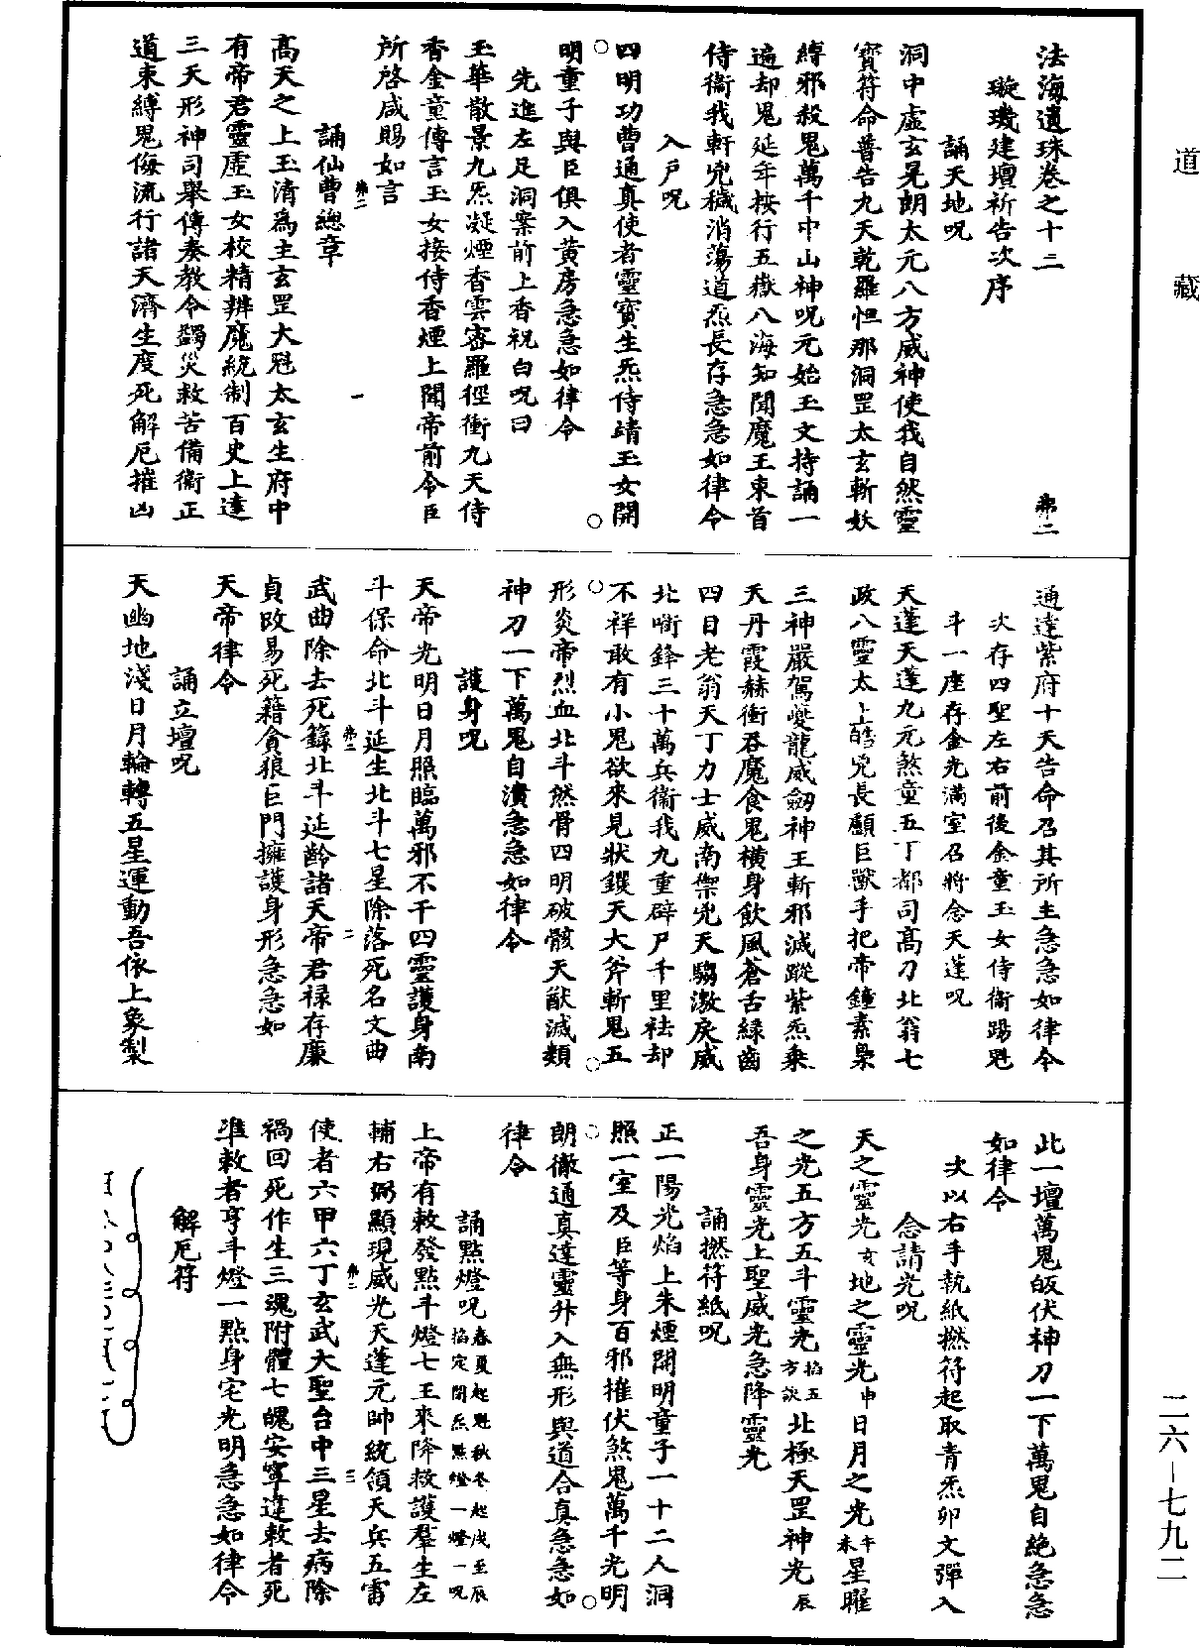 道藏
二六-七九二
法海遺珠卷之十二 弗二
璇璣建壇祈告次序
誦天地呪
洞中虛玄晃朗太元八方威神使我自然靈
寳符命普告九天乾羅怛那洞罡太玄斬妖
縛邪殺鬼萬千中山神呪元始玉文持誦一
遍却鬼延年按行五嶽八海知聞魔王束首
侍衞我軒兇穢消蕩道炁長存急急如律令
入戸呪
四明功曹通真使者靈寳生炁侍靖玉女開
明童子與臣俱入黄房急急如律令
先進左足洞案前上香祝白呪曰
玉華散景九炁凝煙香雲密羅徑衝九天侍
香金童傳言玉女接侍香煙上聞帝前令臣
所啓咸賜如言
誦仙曹總章
弗二 一
高天之上玉清爲主玄罡大魁太玄生府中
有帝君靈虛玉女校精辨魔統制百史上達
三天形神司舉傳奏教令蠲災救苦備衞正
道束縛鬼侮流行諸天濟生度死解厄摧凶
通達紫府十天告命召其所主急急如律令
次存四聖左右前後金童玉女侍衞踢魁
斗一座存金光滿室召將念天蓬呪
天蓬天蓬九元煞童五丁都司高刀北翁七
政八靈太上皓兇長顱巨獸手把帝鐘素梟
三神嚴駕夔龍威劒神王斬邪滅蹤紫炁乗
天丹霞赫衝吞魔食鬼橫身飲風蒼舌綠齒
四目老翁天丁力士威南禦兇天騶激戾威
北啣鋒三十萬兵衞我九重辟尸千里祛却
不祥敢有小鬼欲來見狀钁天大斧斬鬼五
形炎帝烈血北斗然骨四明破骸天猷滅類
神刀一下萬鬼自潰急急如律令
護身呪
天帝光明日月照臨萬邪不干四靈護身南
斗保命北斗延生北斗七星除落死名文曲
弗二 二
武曲除去死籙北斗延齡諸天帝君禄存廉
貞改易死籍貪狼巨門擁護身形急急如
天帝律令
誦立壇呪
天幽地淺日月輪轉五星運動吾依上象製
此一壇萬鬼皈伏神刀一下萬鬼自絶急急
如律令
次以右手執紙撚符起取青炁卯文彈入
念請光呪
天之靈光亥地之靈光申日月之光午未星曜
之光五方五斗靈光掐五方訣北極天罡神光辰
吾身靈光上聖威光急降靈光
誦撚符紙呪
正一陽光焰上朱煙開明童子一十二人洞
照一室及臣等身百邪摧伏煞鬼萬千光明
朗徹通真達靈升入無形與道合真急急如
律令
誦點燈呪春夏起魁秋冬起戌至辰掐定閉炁點燈一燈一呪
上帝有敕發點斗燈七王來降救護羣生左
輔右弼顯現威光天蓬元帥統領天兵五雷
弗二 三
使者六甲六丁玄武大聖台中三星去病除
禍回死作生三魂附體七魄安寧違敕者死
準敕者亨斗燈一點身宅光明急急如律令
解厄符